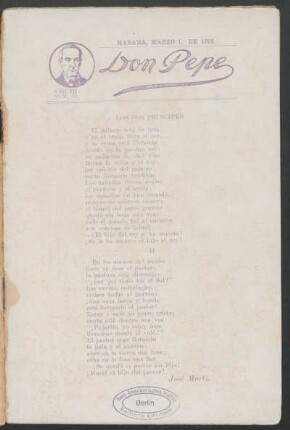 HABANA, MARZO 1. DE 19
Don Pepe
LOS DOS PRINCIPES
El palacio está de luto
y en el trono llora el rey,
y la reina está llorando
donde no la pueden ver:
en pañuelos de
lloran la reina y el rey:
los señores del palacio
están llorando también.
Los caballos llevan negro
el penacho y el arnés:
los caballos no han comido,
porque no quieren comer:
el laurel del patio grande
quedó sin hoja esta vez:
todo el mundo fué al entierro
con coronas de laurel:
—¡El hijo del rey se ha muerto!
¡Se le ha muerto el hijo al rey!
II
En los álamos del monte
tiene su casa el pastor:
la pastora está diciendo
"¿Por qué tiene luz el Sol?"
Las ovejas, cabizbajas,
vienen todas al portón:
¡Una caja larga y honda
está forrando el pastor!
Entra y sale un perro triste:
canta allá dentro una voz:
"Pajarito, yo estoy loca,
llévadme donde él voló!"
El pastor coge llorando
la pala y el azadón:
abre en la tierra una fosa:
echa en la fosa una flor:
—¡Se quedó el pastor sin hijo!
¡Murió el hijo del pastor!
José Martí.
Berlin